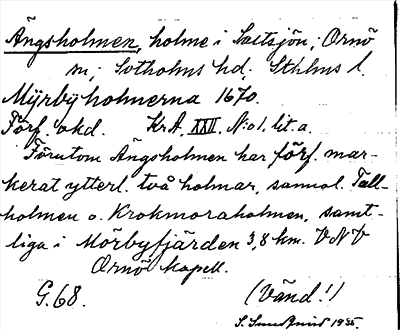 Ängsholmen, holme i Saltsjön; Ornö
sn; Sotholms hd. Sthlms l.
Myrbyholmerna 1670.
Förf. okd. KrA. XXII. No 1. lit. a.
Förutom Ängsholmen har förf. mar-
kerat ytterl. två holmar, sannol. Tall-
holmen o. Krokmoraholmen, samt-
liga i Mörbyfjärden 3,8 km. VNV
Ornö kapell.
G.68. (Vänd!)
S. 1935.